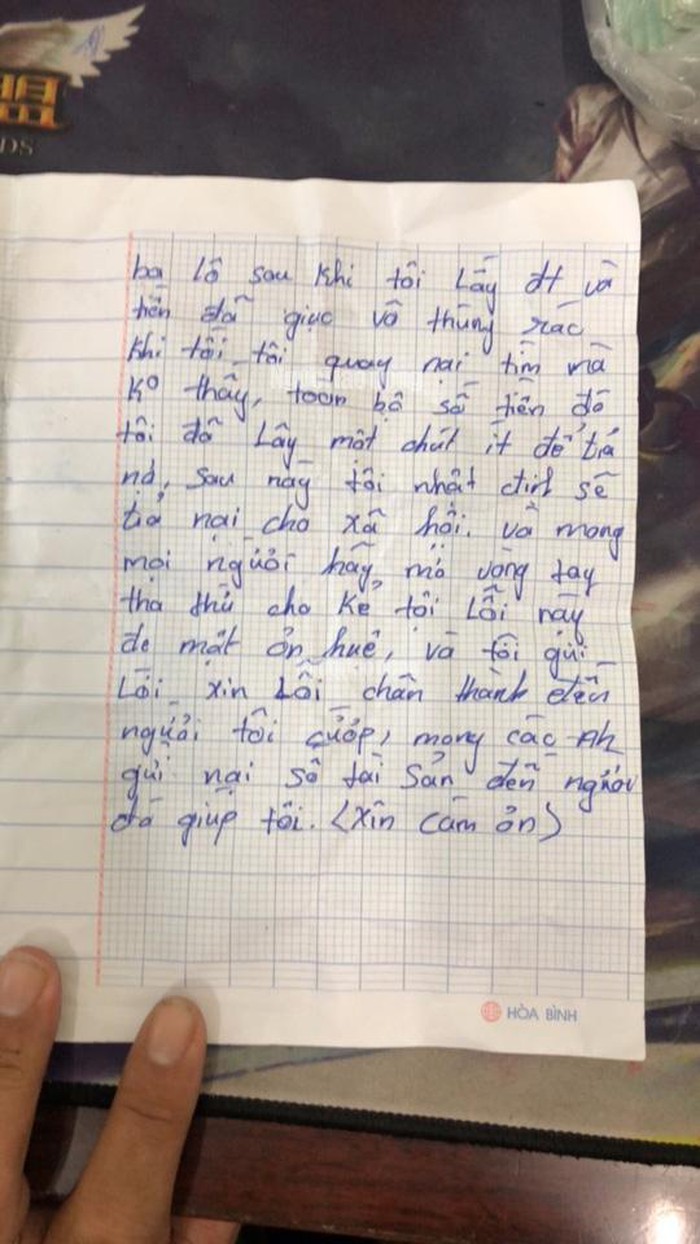 盟
DS
ba lô sau khi tôi Lấy đt và
tiền đã giục vô thùng rác
khi tôi tôi quay nại tìm mà
Ko thấy, toàn bộ số tiền đó
tôi đã Lấy một chút ít để trả
nợ, sau này tôi nhất định sẽ
trả nại cho xã hội. và mong
mọi người hãy mở vòng tay
tha thứ cho kẻ tội Lỗi này
de mất ơn huệ, và tôi gửi
Lời xin Lỗi chân thành đến
người tôi cướp, mong các Ah
gửi nại số tài sản đến người
đã giúp tôi. (Xin cảm ơn)
HÒA BÌNH